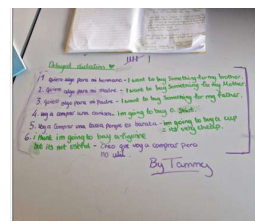 Delayed dictation
1. quiero algo para mi hermano - I want to buy something for my brother.
2. quiero algo para mi madre - I want to buy something for my Mother.
3. quiero algo para mi padre - I want to buy something for my father.
4. voy a comprar una camisa - im going to buy a shirt.
5. Voy a comprar una taza porque es barata - im going to buy a cup
= its very cheap.
6. I think im going to buy a figurine
but its not useful - Creo que voy a comprar pero
no util
By Tammy